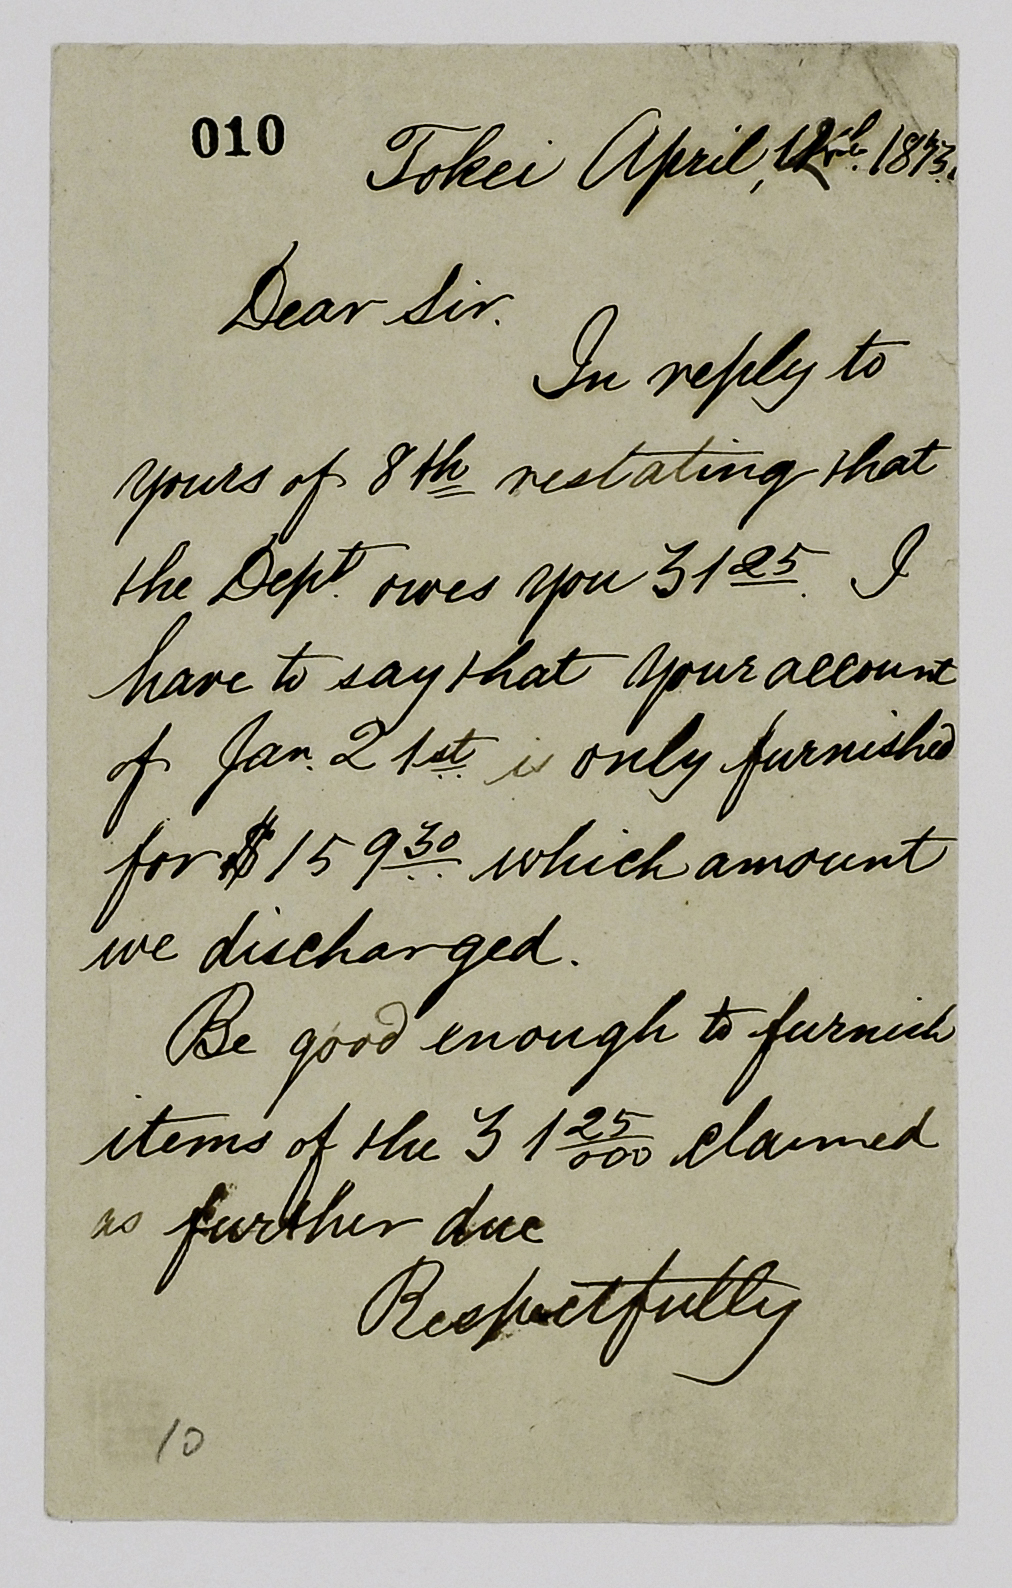 010
Tokei April, 12th. 1873.
Dear Sir.
In reply to
yours of 8th restating that
the Dept. owes you 31 25. I
have to say that your account
of Jan. 21st is only furnished
for $159 30 which amount
we discharged.
Be good enough to furnish
items of the 31 25/000 claimed
as further due
Respectfully
10